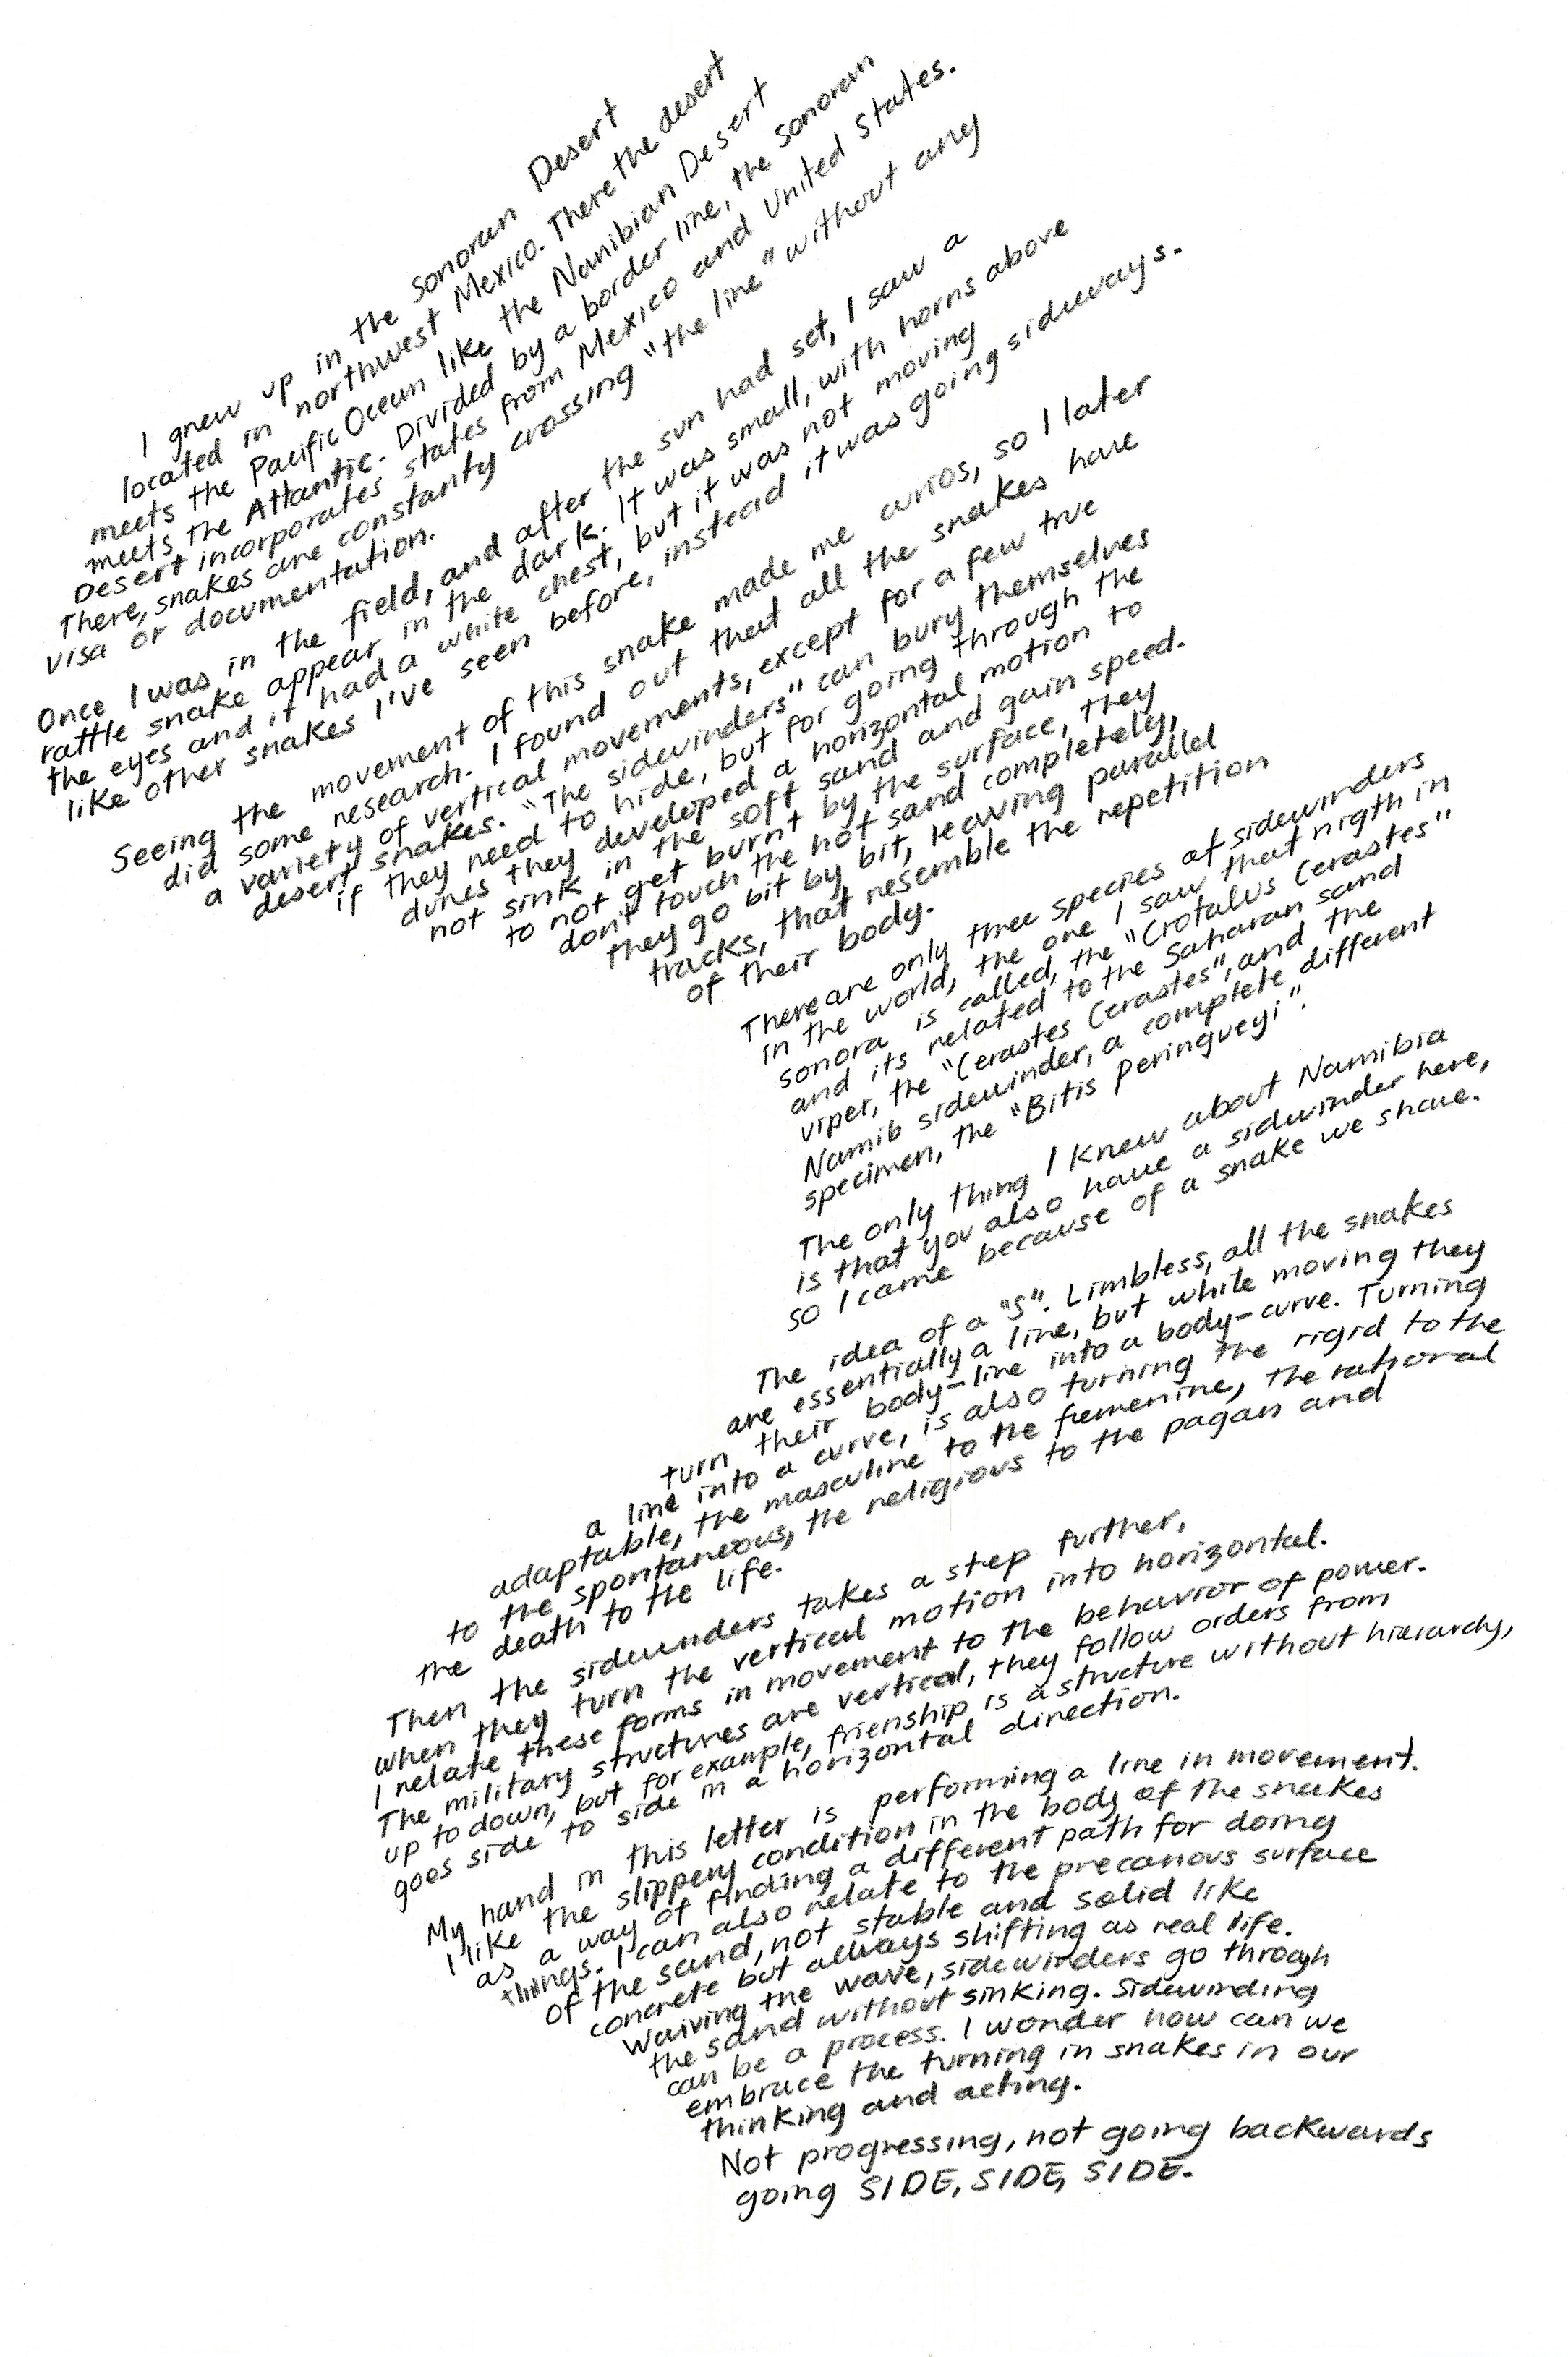 I gnew up in the Sonoran Desert
located in northwest Mexico. There the desert
meets the Pacific Ocean like the Namibian Desert
meets the Atlantic. Divided by a border line, the Sonoran
Desert incorporates states from Mexico and United States.
There, snakes are constanty crossing "the line" without any
visa or documentation.
Once I was in the field, and after the sun had set, I saw a
rattle snake appear in the dark. It was small, with horns above
the eyes and it had a white chest, but it was not moving
like other snakes I've seen before, instead it was going sideways.
Seeing the movement of this snake made me curios, so I later
did some research. I found out that all the snakes have
a variety of vertical movements, except for a few true
desert snakes. "The sidewinders" can bury themselves
if they need to hide, but for going through the
dunes they developed a horizontal motion to
not sink in the soft sand and gain speed.
to not get burnt by the surface, they
don't touch the hot sand completely,
they go bit by bit, leaving parallel
tracks, that resemble the repetition
of their body.
There are only three species of sidewinders
in the world, the one I saw that nigth in
sonora is called, the "Crotalus Cerastes"
and its related to the Saharan sand
viper, the "Cerastes Cerastes", and the
Namib sidewinder, a complete different
specimen, the "Bitis Peringueyi".
The only thing I knew about Namibia
is that you also have a sidewinder here,
so I came because of a snake we share.
The idea of a "S". Limbless, all the snakes
are essentially a line, but while moving they
turn their body-line into a body-curve. Turning
a line into a curve, is also turning the rigid to the
adaptable, the masculine to the femenine, the rational
to the spontaneous, the religious to the pagan and
the death to the life.
Then the sidewinders takes a step further,
when they turn the vertical motion into horizontal.
I relate these forms in movement to the behavior of power.
The military structures are vertical, they follow orders from
up to down, but for example, frienship is a structure without hierarchy,
goes side to side in a horizontal direction.
My hand in this letter is performing a line in movement.
I like the slippery condition in the body of the snakes
as a way of finding a different path for doing
things. I can also relate to the precarious surface
of the sand, not stable and solid like
concrete but always shifting as real life.
Waiving the wave, sidewinders go through
the sand without sinking. Sidewinding
can be a process. I wonder how can we
embrace the turning in snakes in our
thinking and acting.
Not progressing, not going backwards
going SIDE, SIDE, SIDE.